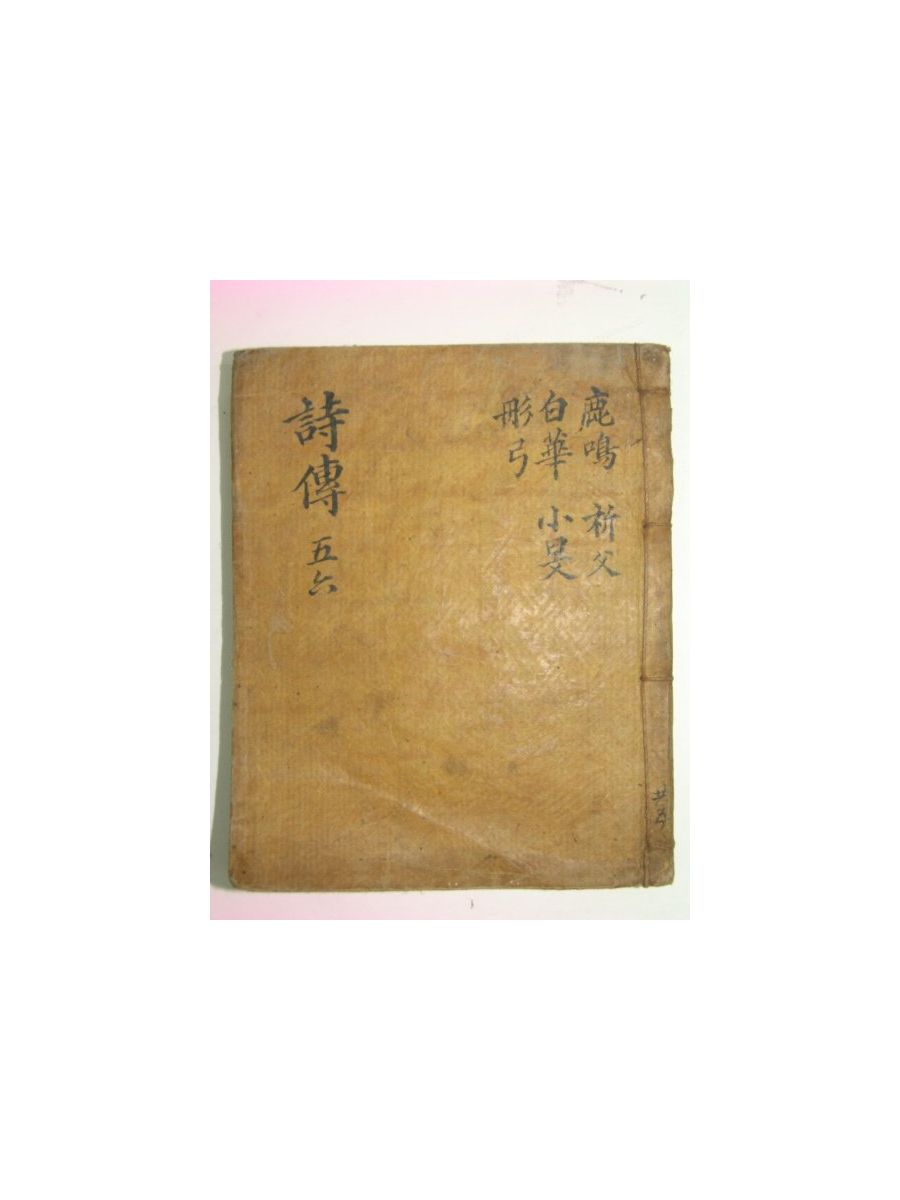 鹿鳴 祈父
白華 小旻
彤弓
詩傳 五六
共五